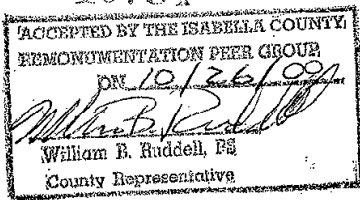 ACCEPTED BY THE ISABELLA COUNTY
REMONUMENTATION PEER GROUP
ON 10/26/00
William B. Ruddell
William B. Ruddell, PS
County Representative